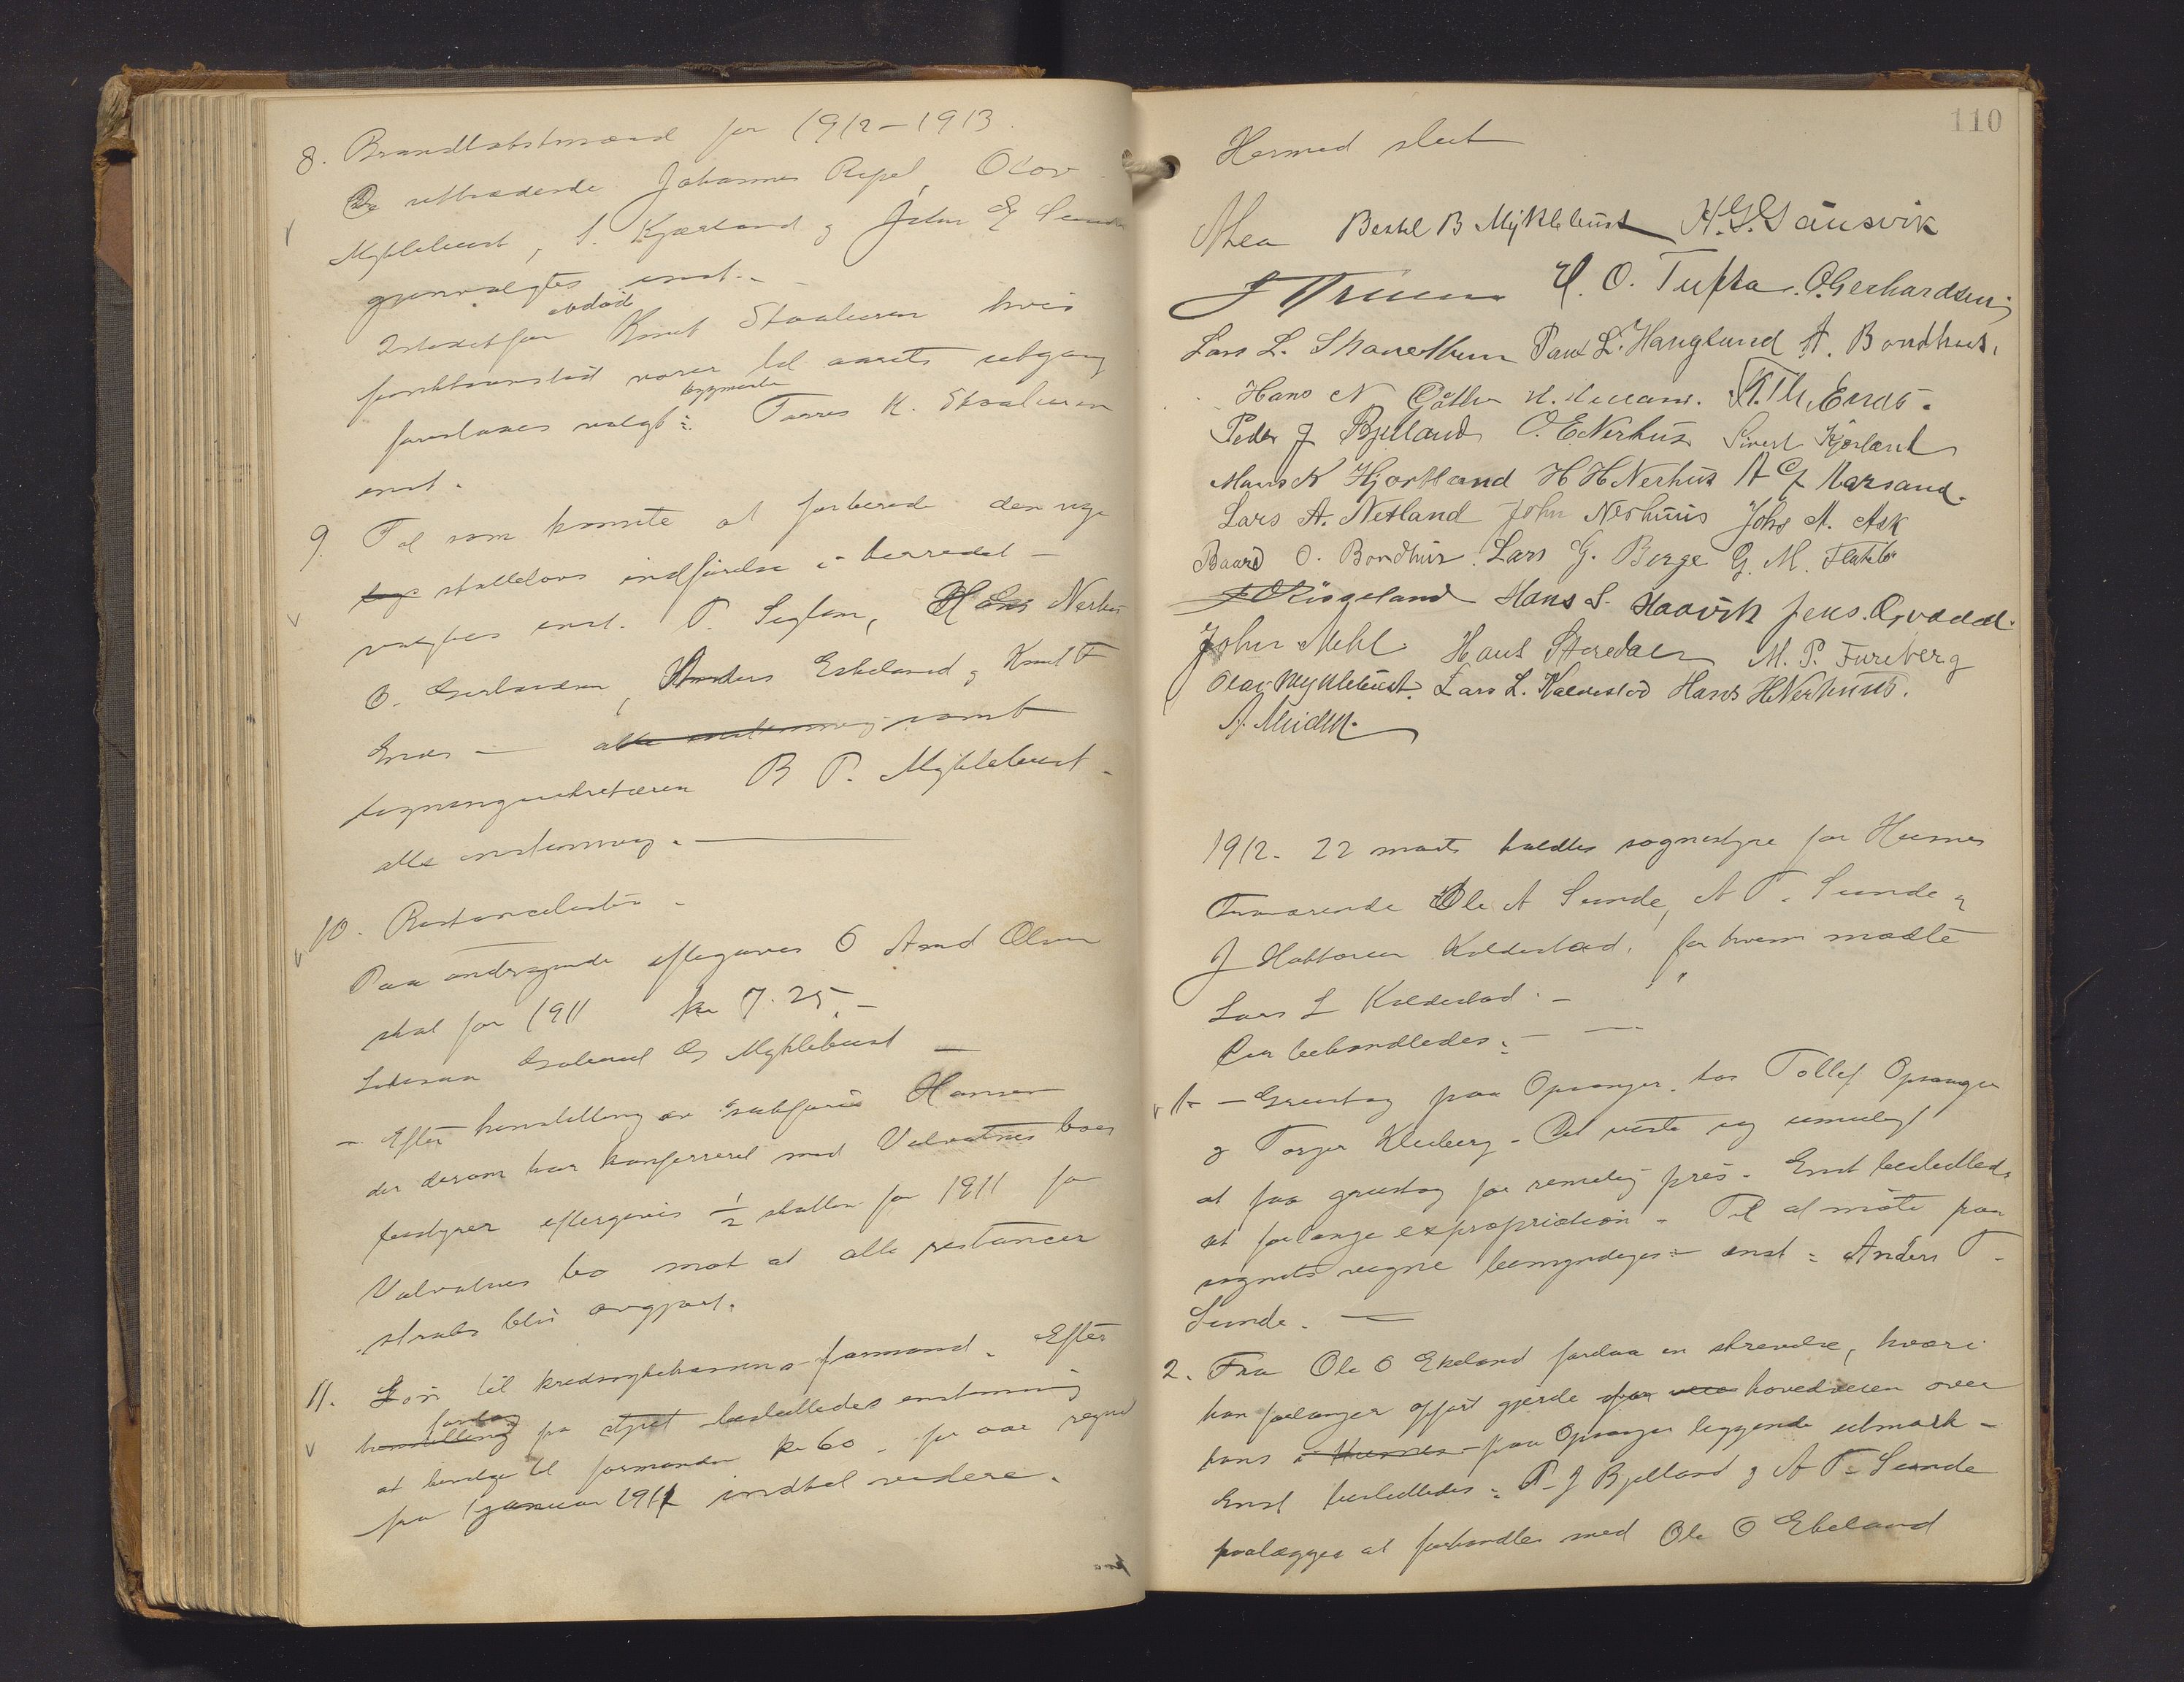 8. Brandtakstmænd for 1912-1913.
De uttrædende Johannes Repel, Olav
Myklebust, S. Kjærland & John E Sunde
gjenvalgtes enst.-
avdöde
Istedetfor Knut Skaaluren hvis
funktionstid varer til aarets utgang
byggmester
foreslaaes valgt: Torres K. Skaaluren
enst.
9. Til som komite at forberede den nye
skattelovs indförelse i herredet -
valgtes enst. T. Seglem, Hans Nerhus
O. Gerhardsen, Anders Eskeland & Knut T
Enæs - alle enstemmig samt
ligningssekretæren B P. Myklebust -
alle enstemmig. -
10. Restancelisten -
Paa andragende eftergaves O Amd Olsen
skat for 1911 kr 7.25.-
Gabriel G Myklebust -
- Efter henstilling av sakförer Hansen
der derom har konferrert med Valvatnes bos
bestyrer eftergives ½ skatten for 1911 for
Valvatnes bo mot at alle restancer
straks blir avgjort.
11. Lön til kredssykekassens formand. Efter
forslag
henstilling fra styret besluttedes enstemmig
at bevilge til formanden kr 60 - pr aar regnet
fra 1 januar 1911 indtil videre.
110
Hermed slut
Bertel B Myklebust H.G. Gausvik
H. O. Tufta O. Gerhardsen
Lars L. Skarethun Paul L. Hauglund A. Bondhus.
Hans N K. Th. Enæs.
Peder J Bjelland O. E. Nerhus Sivert Kjærland
Hans N Hjortland H H Nerhus A G Marsand.
Lars A. Netland John Nerhuus Johs A. Ask
Baard O. Bondhus. Lars G. Berge G. M. Flatebö
J O Risgeland Hans S. Haavik Jens. Qvaadl.
John Mehl Hans Steredalen M. P. Fureberg
Olai Myklebust. Lars L. Kaldestad Hans H Nerhuus.
1912. 22 marts holdtes sognestyre for Husnes
Fraværende Ole A Sunde, A T. Sunde &
J Hattaren Kaldestad, for hvem mödte
Lars L Kaldestad. -
Der behandledes: -
1. - Grustag paa Opsanger hos Tollef Opsanger
& Torger Kleiberg - Det viste sig umuligt
at faa grustag for rimelig pris - Enst besluttedes
at forlange expropriation - Til at möte paa
sognets vegne bemyndiges - enst: Anders T.
Sunde. -
2. Fra Ole O Ekeland forelaa en skrivelse, hvori
han forlanger opfört gjerde for veie hovedveien over
hans i Husnes - paa Opsanger liggende utmark -
Enst besluttedes: P. J Bjelland & A T. Sunde
paalægges at forhandle med Ole O Ekeland